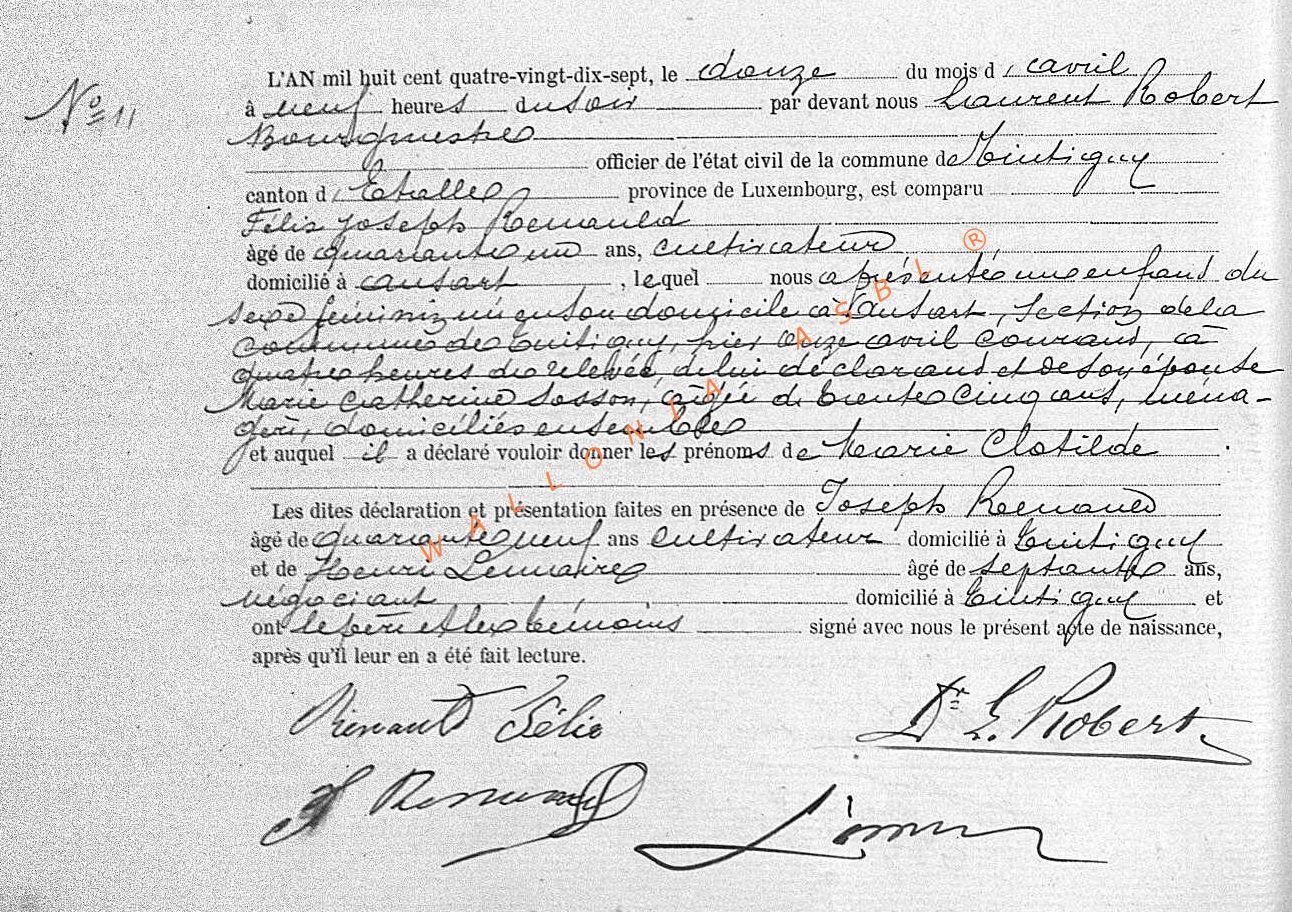 L'AN mil huit cent quatre-vingt-dix-sept, le douze du mois d'avril
No 11
à neuf heures du soir par devant nous Laurent Robert
Bourgmestre
officier de l'état civil de la commune de Tintigny
canton d'Etalle province de Luxembourg, est comparu
Félix Joseph Renauld
âgé de quarante un ans, cultivateur
domicilié à ansart, lequel nous a présenté une enfant du
sexe féminin né en son domicile à Ansart, section de la
commune de Tintigny, hier onze avril courant, à
quatre heures de relevée, de lui déclarant et de son épouse
Marie Catherine Sosson, âgée de trente cinq ans, ména-
gère, domiciliés ensemble
et auquel il a déclaré vouloir donner les prénoms de Marie Clotilde
Les dites déclaration et présentation faites en présence de Joseph Renauld
âgé de quarante neuf ans cultivateur domicilié à Tintigny
et de Henri Lemaire âgé de septante ans,
négociant domicilié à Tintigny et
ont le père et les témoins signé avec nous le présent acte de naissance,
après qu'il leur en a été fait lecture.
Renauld Félix
Dr L. Robert
J Renauld
WALLONIA ASBL ®